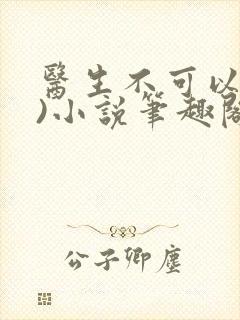 醫生不可以
)小說筆趣閣
公子卿塵